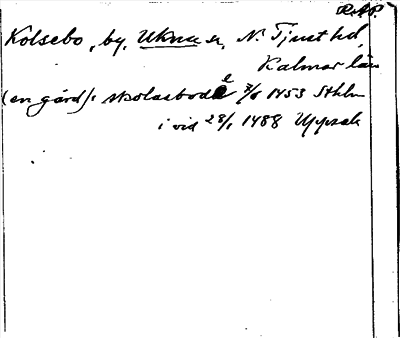 R.A.P.
Kolsebo, by, Ukna sn, N. Tjust hd,
Kalmar län
(en gård): skolasbode 8/6 1453 Sthlm
i vid 28/1 1488 Uppsala